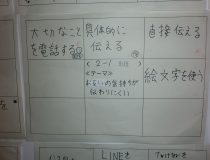 大切なこと
を電話する
具体的に
伝える
直接伝える
<2-1
<テーマ>
お互いの気持ちが
伝わりにくい
絵文字を使う
LINEを